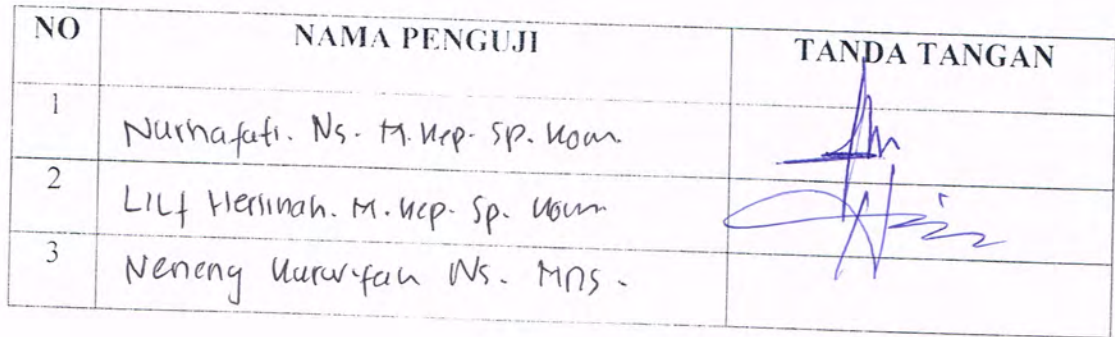 NO NAMA PENGUJI TANDA TANGAN
1 Nurhafati. Ns. M. Kep. Sp. Kom
2 Herlinah. M. Kep. Sp. Kom
3 Neneng Ns. MNS.